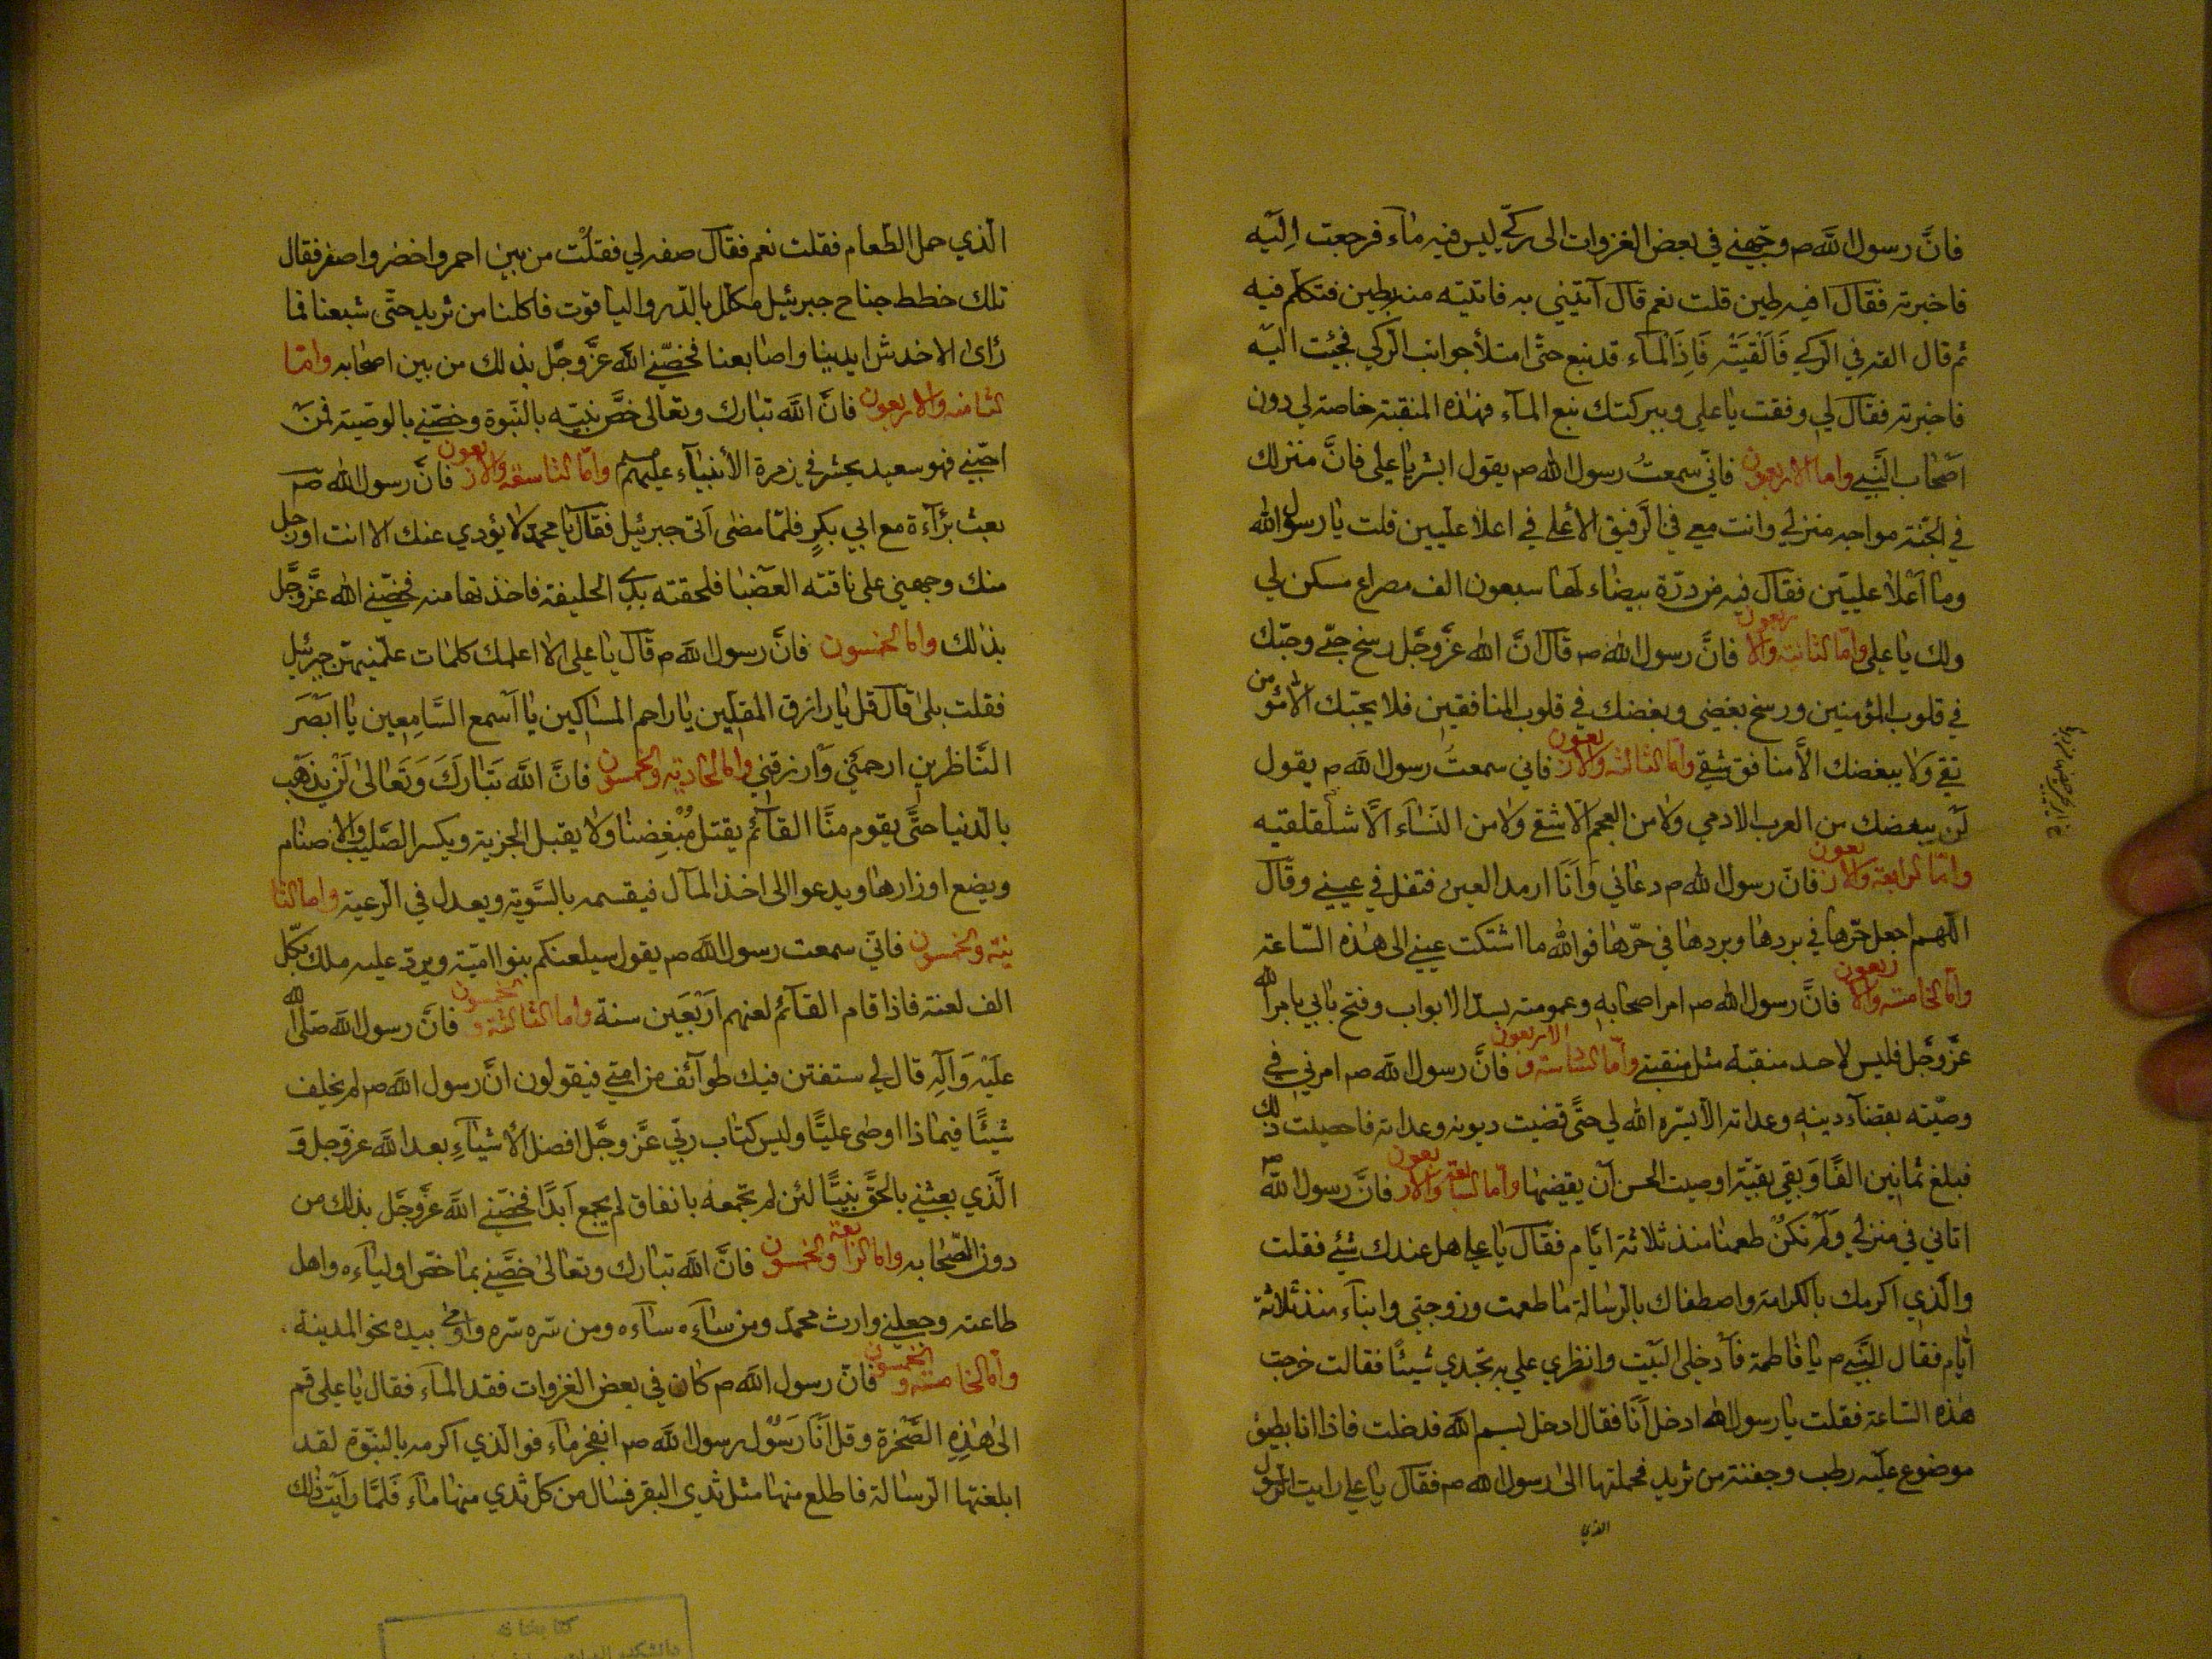 فانَّ رسول اللَّه ص وجّهني في بعض الغزوات الى ركّي ليس فيه ماء فرجعت اِليْه
فاخبرته فقال افيه طين قلت نعم قال آتيني به فاتيته منه بطين فتكلّم فيه
ثم قال القه في الركي فَاَلْقَيَتْه فَاِذَا المآء قد نبع حتّى امتلأ جوانب الركي فجئت اليْه
فاخبرته فقال لي وفقت يا علي وببركتك نبع المآء فهذه المنقبة خاصة لي دون
اَصْحاب النَّبي واما الاربعون فانّي سمعتُ رسول اللّه ص يقول ابشر يا علي فانَّ منزلك
في الجنّة مواجه منزلي وانت معي في الرّفيق الأعلى في اعلا علّيين قلت يا رسول اللّه
وما اَعْلا علييّن فقال قبه من درّة بيضاء لها سبعون الف مصراع مسكن لي
ولك يا علي وامّا الثانية والاربعون فانَّ رسول اللّه ص قال انَّ اللّه عزَّ وجَل رسخ حبّي وحبّك
في قلوب المؤمنين ورسخ بغضي وبغضك في قلوب المنافقين فلا يحبّك الّا مؤمن
تقي ولا يبغضك الّا منافق شقي وامّا الثالثة والاربعون فاني سمعتُ رسول اللَّه ص يقول
لَن يبغضك من العرب الا دعي ولا من العجم الّا شقي ولا من النّسآء الّا شلقلقيه
وامّا الرابعة والاربعون فانّ رسول اللّه ص دعاني وَاَنَا ارمد العين فتفل في عيني وقال
اللّهم اجعل حرّها في بردها وبردها في حرّها فو اللّه ما اشتكت عيني الى هذه السّاعة
وامّا الخامسة والاربعون فانَّ رسول اللّه ص امر اصحابه وعمومته بسدّ الابواب وفتح بابي بامر اللّه
عزَّ وجَل فليس لاحد منقبة مثل منقبتي وامّا السّادسة والاربعون فانَّ رسول اللَّه ص امرني في
وصيّته بقضآء دينه وعداته الّا يسّره اللّه لي حتًّى قضيت ديونه وعداته فاحصيلت ذلك
فبلغ ثمانين الفًا وَبقي بقيّة اوصيت الحسن اَن يقضيها وامّا السّابعة والاربعون فانَّ رسول اللّه ص
اتاني في منزلي وَلَم نكنْ طعمنا منذ ثلاثة ايّام فقال يا علي هل عندك شئ فقلت
والّذي اكرمك بالكرامة واصطفاك بالرّسالة ما طعمت وزوجتي وابناء منذ ثلاثة
اَيّام فقال النَّبي ص يا فاطمة فأدخلى البيْت وانظري علي به تجدي شيئًا فقالت خرجت
هذه السّاعة فقلت يا رسول اللّه ادخل اَنَا فقال ادخل بسم اللَّه فدخلت فاذا انا بطبق
موضوع عليْه رطب وجفنة من ثريد فحملتها الى رسول اللّه ص فقال يا علي رايت الرّسول
الذي
الّذي حمل الطّعام فقلت نعم فقال صفه لي فقلْت من بين احمر واخضر واصفر فقال
تلك خطط جناح جبرئيل مكلّل بالدّر والياقوت فاكلنا من ثريد حتّى شبعنا فما
رُاىَ الا خدش ايدينا واصابعنا فخصّني اللَّه عزَّ وجَّل بذلك من بين اصحابه وامّا
الثامنة والاربعون فانَّ اللَّه تبارك وتعالى خصَّ نبيّه بالنّبوة وخصّني بالوصيّة فمنْ
احبّني فهو سعيد يحشر في زمرة الأنبيآء عليهم وامّا التاسعة والاربعون فانَّ رسول اللّه ص
بعث برُآءة مع ابي بكرٍ فلمّا مضى اَتى جبرئيل فقال يا محمّد لا يؤدي عنك الا انت او رجل
منك وجهني على ناقته العضبا فلحقته بذي الحليفة فاخذتها منه فخصّني اللّه عزَّ وجَّل
بذلك وامّا الخمسون فانَّ رسول اللَّه ص قال يا علي الا اعلمك كلمات علّمنيهن جبرئيل
فقلت بلى قال قل يا رازق المقلّين يا راحم المساكين يا اَسمع السَّامِعين يا ابْصَر
النَّاظرين ارحمْني وَارزقني وامّا الحادية والخمسون فانَّ اللَّه تَبارَكَ وَتَعالىٰ لَنْ يذهَب
بالدّنيا حتَّى يقوم منَّا القآئم يقتل مُبْغِضنا ولا يقبل الجزية ويكسر الصّليب والاصنام
ويضع اوزارها ويدعوا الى اخذ المآل فيقسمه بالسَّويّة ويعدل في الرّعية واما الثا
نية والخمسون فانّي سمعت رسول اللَّه ص يقول سيلعنكم بنوا اميّة ويردّ عليه ملك بكّل
الف لعنة فاذا قام القآئم لعنهم اَرْبَعَين سنة واما الثالثة والخمسون فانَّ رسول اللَّه صلّى اللّه
عليْه وَآلِه قال لي ستفتن فيك طوآئف من امتي فيقولون انَّ رسول اللَّه ص لم يخلف
شيئًا فبماذا اوصٰى عليًّا وليس كتاب ربّي عزَّ وجَّل افضل الأشيآءِ بعد اللَّه عزّ وجل وَ
الّذي بعثني بالحقَّ نبيًّا لئن لم تجمعه باتفاق لم يجمع اَبدًا فخصّني اللَّه عزَّ وجَّل بذلك من
دون الصّحابه وامّا الرابعة والخمسون فانَّ اللَّه تبارك وتعالىٰ خصَّني بما خصّ اوليآءه واهل
طاعته وجعلني وارث محمّد ومن سآءه سآءه ومن سّره سّره واومى بيده نحو المدينة
وامّا الخامسة والخمسون فانّ رسول اللَّه ص كان في بعض الغزوات فقد المآء فقال يا علي قم
الىٰ هٰذِهِ الصَّخرة وقل اَنَا رَسُوْل رسول اللَّه ص انفجر مآء فو الّذي اكرمه بالنبّوة لقد
ابلغتها الرّسالة فاطلع منها مثل ثدي البقر فسال من كل ثدي منها مآء فَلَمَّا رأيت ذلك
كتابخانه